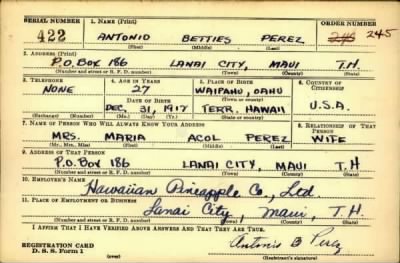 SERIAL NUMBER 1. NAME (Print) ORDER NUMBER
422 ANTONIO BETTIES PEREZ 245 245
(First) (Middle) (Last)
2. ADDRESS (Print)
P.O. BOX 186 LANAI CITY, MAUI T.H.
(Number and street or R. F. D. number) (Town) (County) (State)
3. TELEPHONE 4. AGE IN YEARS 5. PLACE OF BIRTH 6. COUNTRY OF CITIZENSHIP
NONE 27 WAIPAHU, OAHU
DATE OF BIRTH (Town or county)
DEC. 31, 1917 TERR. HAWAII U.S.A.
(Exchange) (Number) (Mo.) (Day) (Yr.) (State or country)
7. NAME OF PERSON WHO WILL ALWAYS KNOW YOUR ADDRESS 8. RELATIONSHIP OF THAT PERSON
MRS. MARIA ACOL PEREZ WIFE
(Mr., Mrs., Miss) (First) (Middle) (Last)
9. ADDRESS OF THAT PERSON
P.O. BOX 186 LANAI CITY, MAUI T.H
(Number and street or R. F. D. number) (Town) (County) (State)
10. EMPLOYER'S NAME
Hawaiian Pineapple Co., Ltd.
11. PLACE OF EMPLOYMENT OR BUSINESS
Lanai City, Maui, T.H.
(Number and street or R. F. D. number) (Town) (County) (State)
I AFFIRM THAT I HAVE VERIFIED ABOVE ANSWERS AND THAT THEY ARE TRUE.
REGISTRATION CARD Antonio B Perez
D. S. S. Form 1 (over) (Registrant's signature)